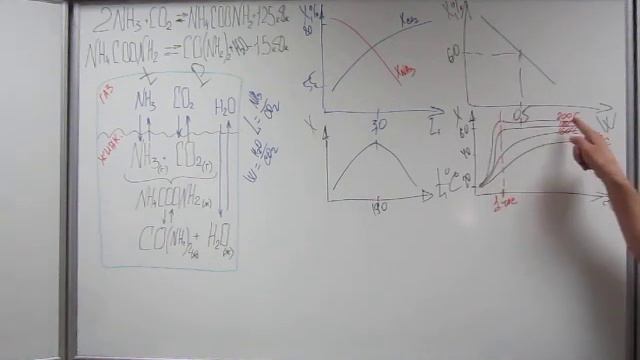 2NH₃+CO₂⇌NH₄COONH₂+125кДж
NH₄COONH₂⇌CO(NH₂)₂+H₂O-15кДж
t P
ГАЗ
NH₃ CO₂ H₂O
ЖИДК
NH₃(г) + CO₂(г)
NH₄COONH₂(ж)
CO(NH₂)₂(ж) + H₂O(ж)
L=NH₃/CO₂
W=H₂O/CO₂
X,%
80
X_CO₂
X_NH₃
3,0
L
X
190
t°C
X,%
60
0,5
W
X
60
40
200
1